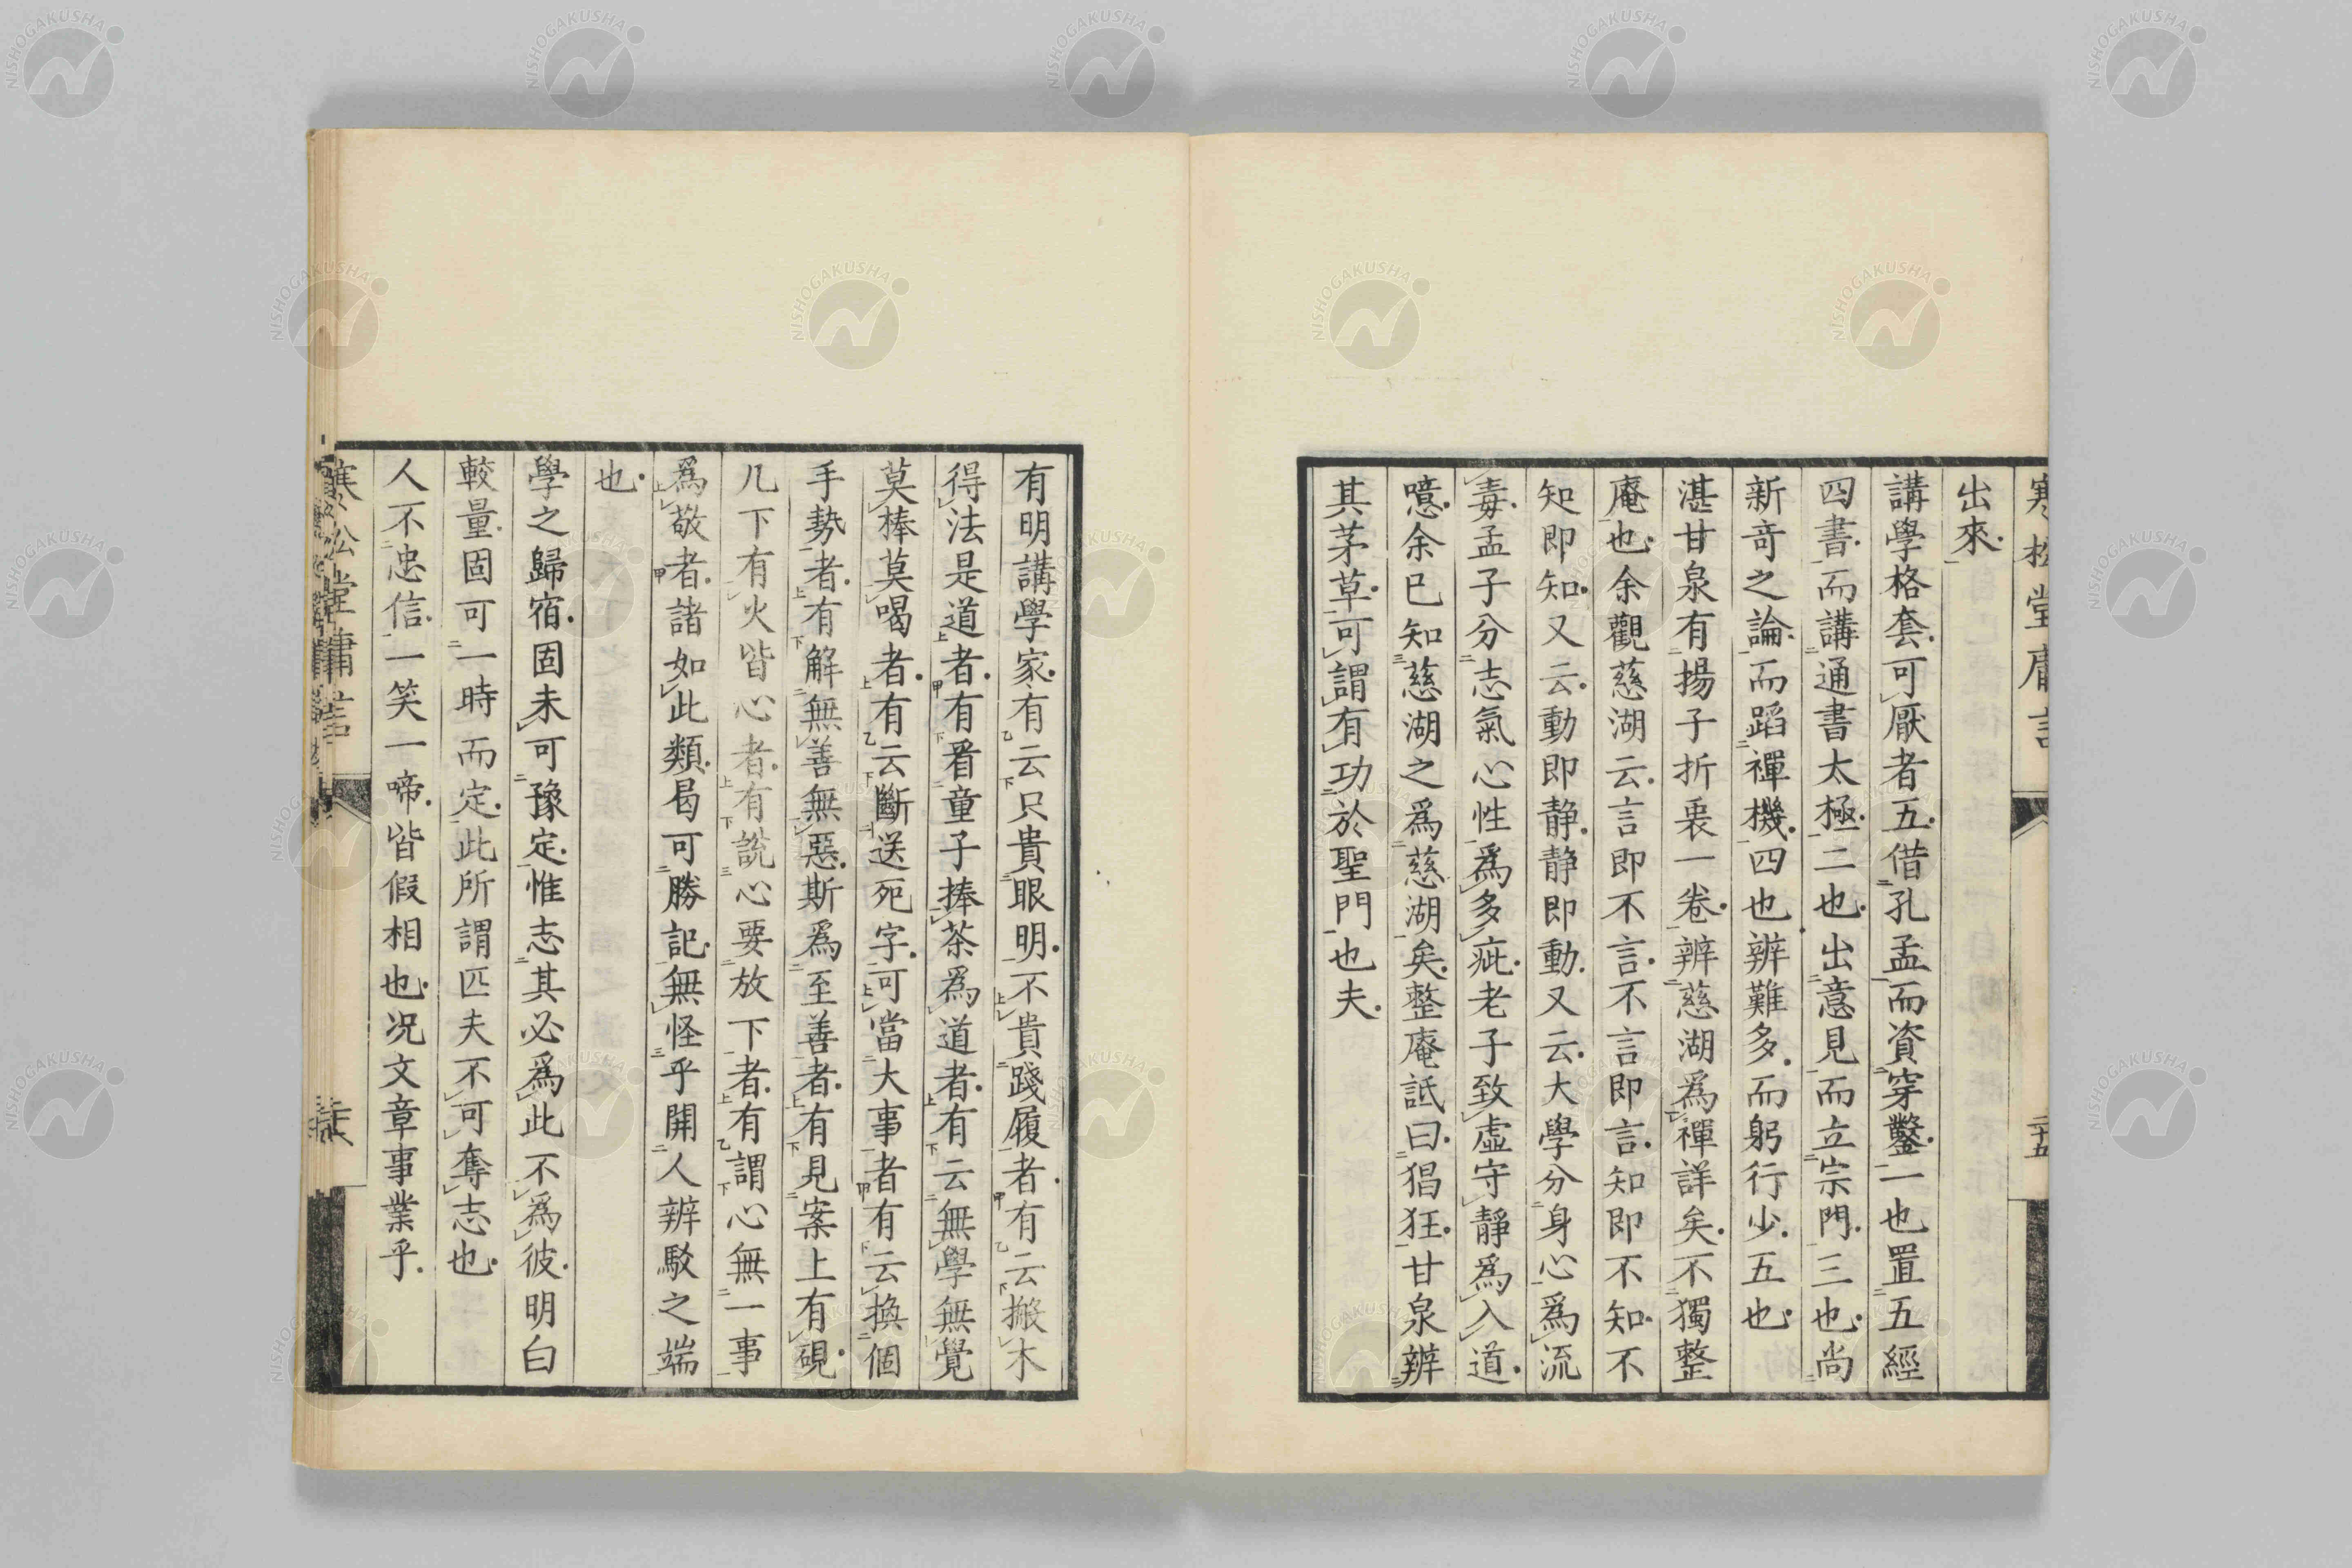 寒松堂庸言
二十五
出來
講學格套可厭者五借孔孟而資穿鑿一也置五經
四書而講通書太極二也出意見而立宗門三也尚
新奇之論而蹈禪機四也辨難多而躬行少五也
湛甘泉有揚子折衷一卷辨慈湖爲禪詳矣不獨整
庵也余觀慈湖云言即不言不言即言知即不知不
知即知又云動即静静即動又云大學分身心爲流
毒孟子分志氣心性爲多疵老子致虛守靜爲入道
噫余已知慈湖之爲慈湖矣整庵詆曰猖狂甘泉辨
其茅草可謂有功於聖門也夫
有明講學家有云只貴眼明不貴踐履者有云搬木
得法是道者有看童子捧茶爲道者有云無學無覺
莫棒莫喝者有云斷送死字可當大事者有云換個
手勢者有解無善無惡斯爲至善者有見案上有硯
几下有火皆心者有說心要放下者有謂心無一事
爲敬者諸如此類曷可勝記無怪乎開人辨駁之端
也
學之歸宿固未可豫定惟志其必爲此不爲彼明白
較量固可一時而定此所謂匹夫不可奪志也
人不忠信一笑一啼皆假相也况文章事業乎
NISHOGAKUSHA